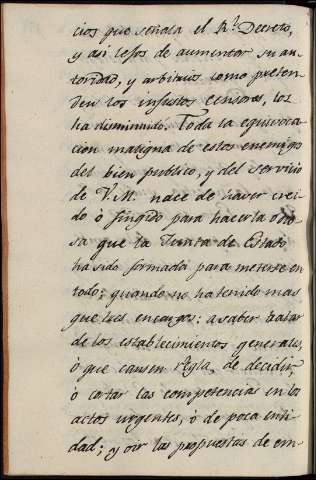 cios que señala el Rˡ. Decreto,
y asi lejos de aumentar su au-
toridad, y arbitrios como preten-
den los injustos censores, los
ha disminuido. Toda la equivoca-
cion maligna de estos enemigos
del bien publico, y del servicio
de V.M. nace de haver crei-
do ò fingido para hacerla odio-
sa que la Junta de Estado
ha sido formada para meterse en
todo; quando no ha tenido mas
que tres encargos: a saber tratar
de los establecimientos generales,
ò que causen regla, de decidir,
ò cortar las competencias en los
actos urgentes, ò de poca enti-
dad; y oir las propuestas de em-